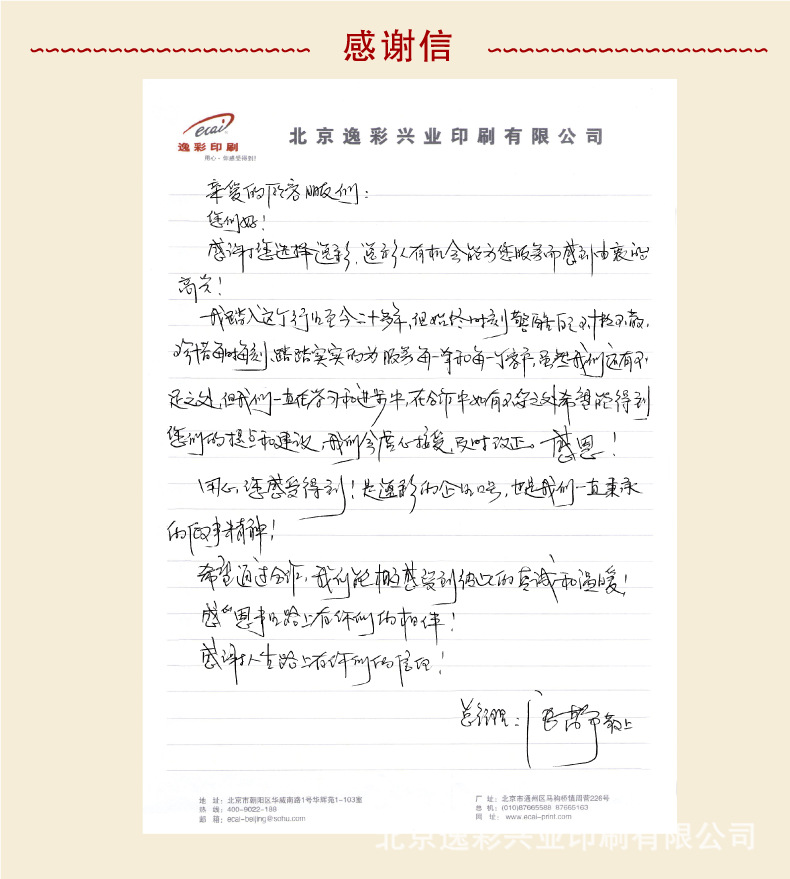 感谢信
ecai
逸彩印刷
用心·你感受得到!
北京逸彩兴业印刷有限公司
亲爱的所有朋友们：
您们好！
感谢您选择逸彩，逸彩人有机会能为您服务而感到由衷的
高兴！
我踏入这个行业至今二十多年，但始终时刻警醒自己不怠
每时每刻，踏踏实实的为服务每一单和每一个客户，虽然我们还有不
足之处，但我们一直在学习和进步中，在合作中如有不完之处希望能得到
您们的提点和建议，我们会虚心接受，及时改正。感恩！
用心，您感受得到！是逸彩的企业口号，也是我们一直秉承
的做事精神！
希望通过合作，我们能相互感受到彼此的真诚和温暖！
感恩事业路上有你们的相伴！
感谢人生路上有你们的信任！
总经理：
敬上
地 址：北京市朝阳区华威南路1号华辉苑1-103室
热 线：400-9022-188
邮 箱：ecai-beijing@sohu.com
厂 址：北京市通州区马驹桥镇周营226号
总 机：(010)87665588 87665163
网 址：www.ecai-print.com
北京逸彩兴业印刷有限公司